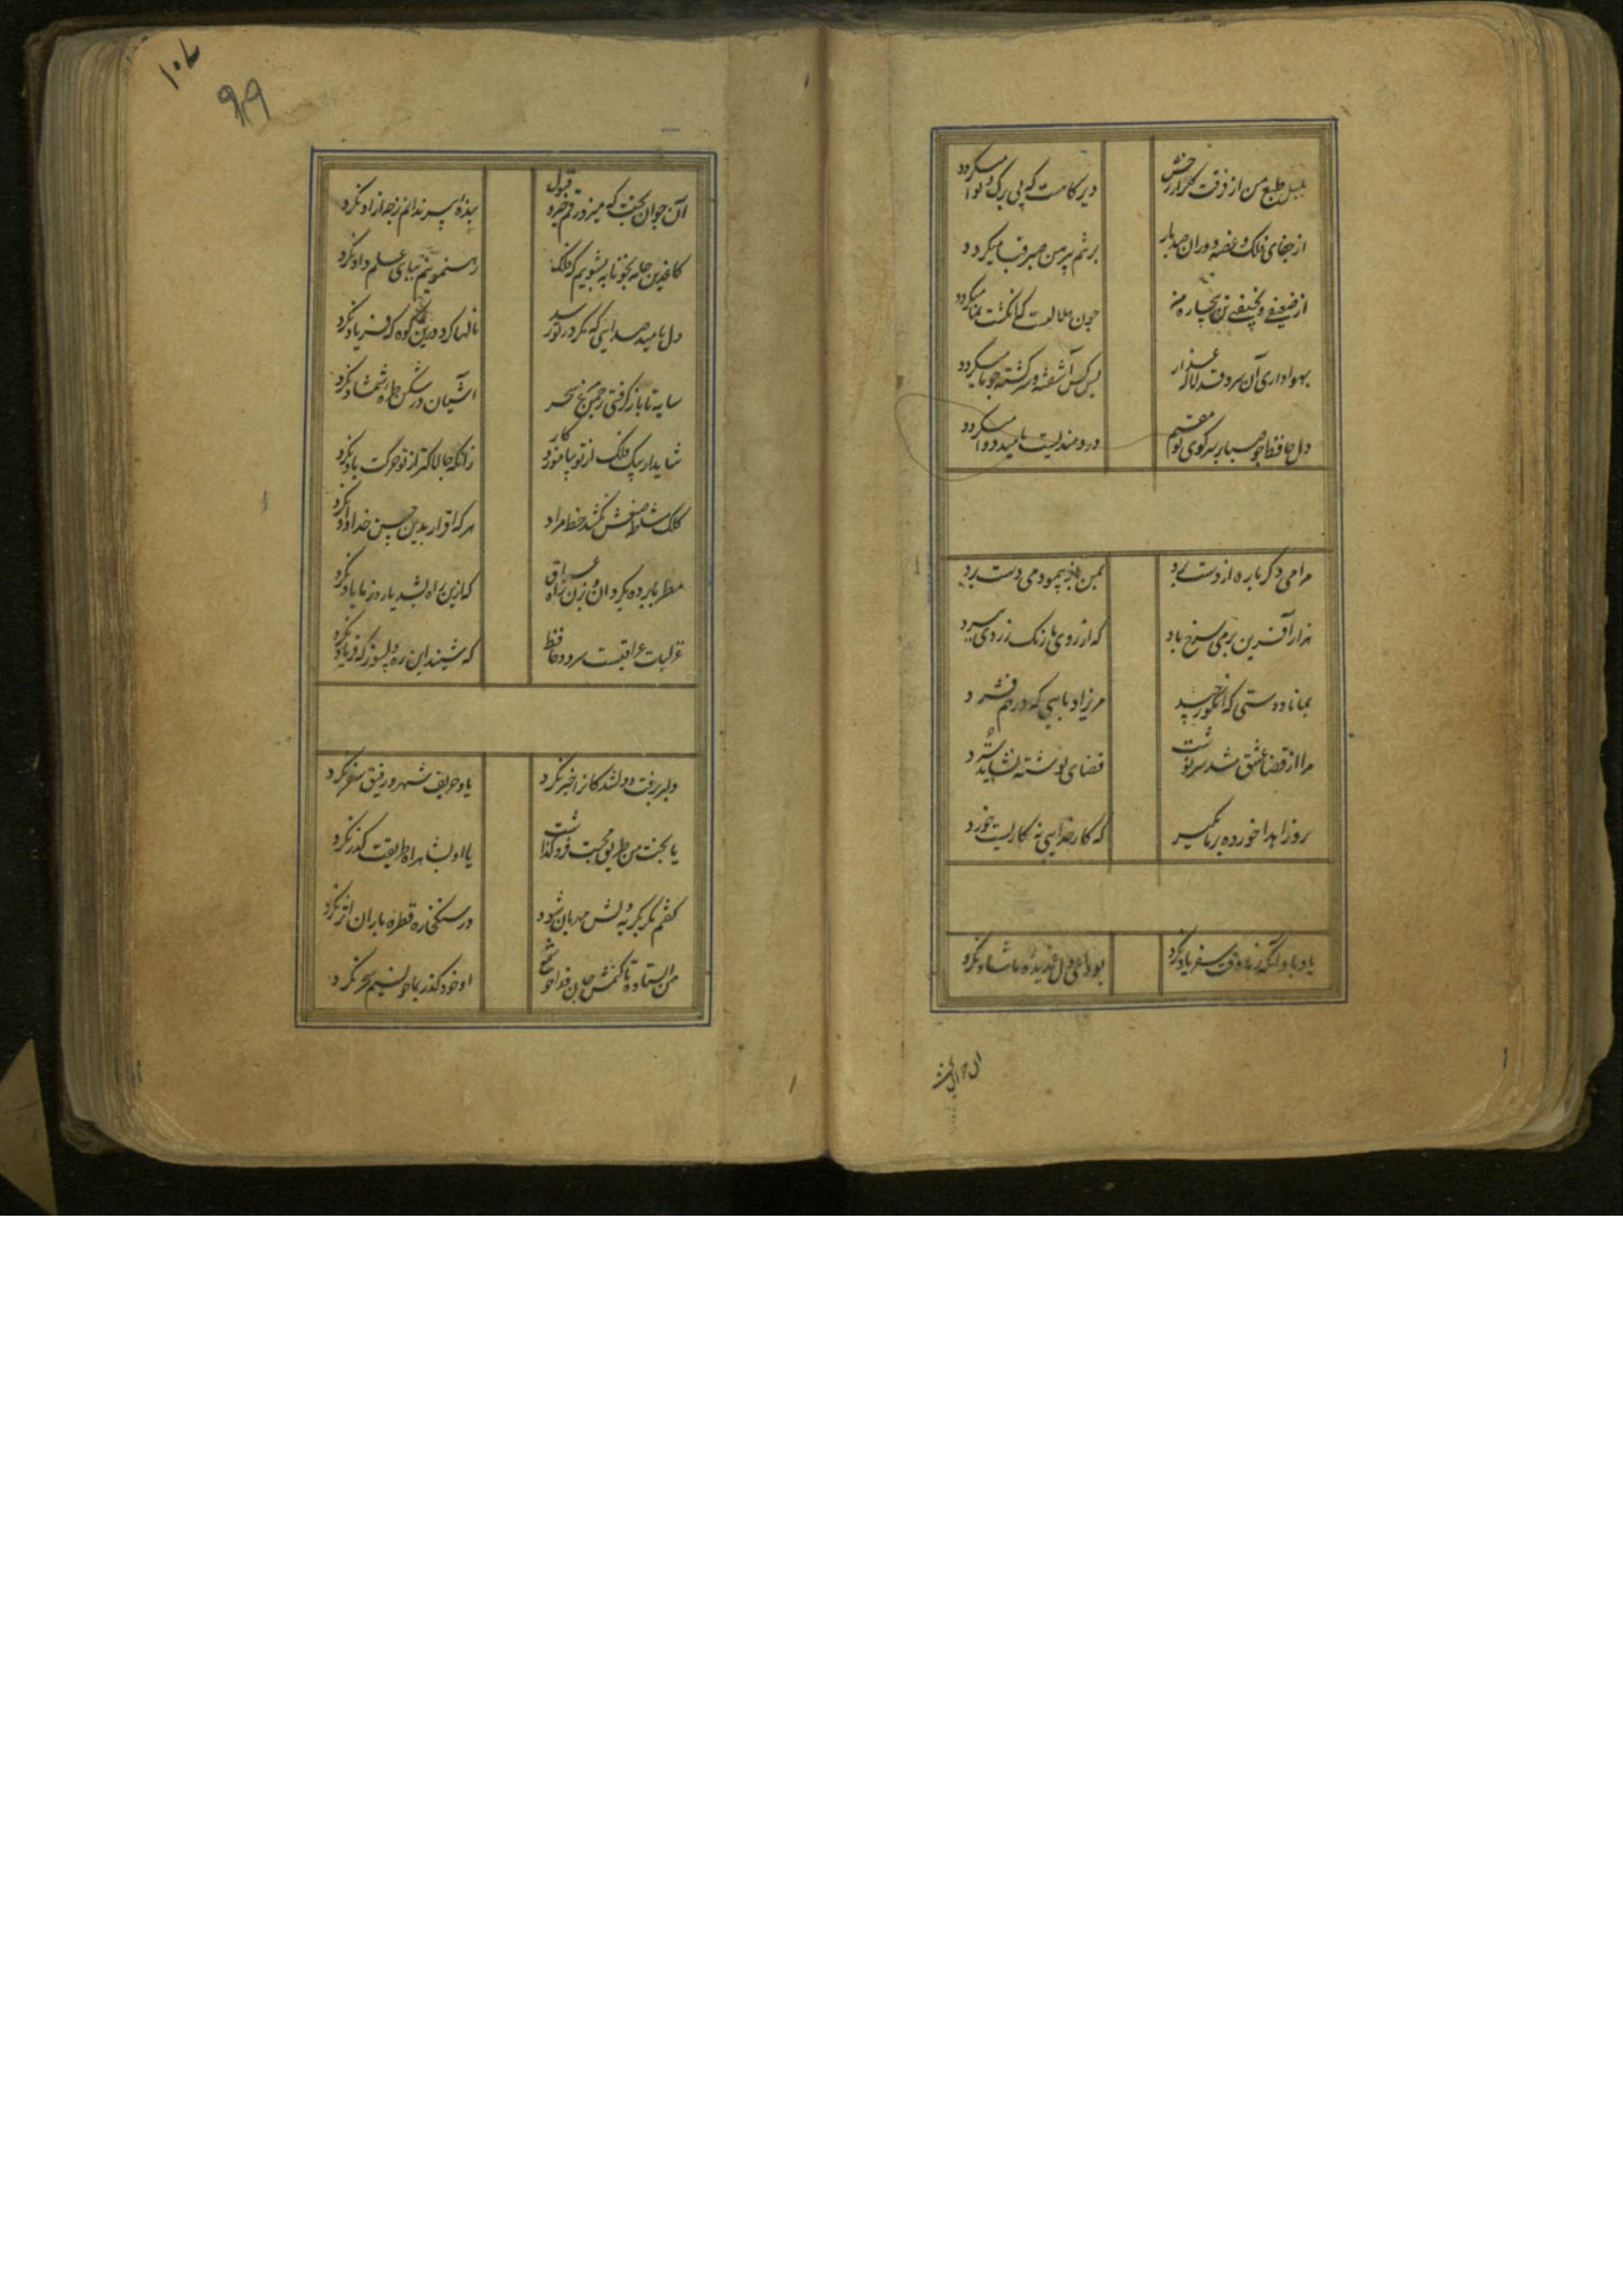 بلبل طبع من از فرقت گلزار رخش
دیرگاهست که بی برگ و نوا میگردد
از جفای فلک و غصه دوران صد بار
بر تنم پیرهن صبر قبا میگردد
از ضعیفی و نحیفی تن بیچاره من
چون هلالیست که انگشت نما میگردد
بهواداری آن سرو قد لاله عذار
بس کس آشفته و سرگشته چو ما میگردد
دل حافظ چو صبا بر سر کوی تو مقیم
دردمندیست بامید دوا میگردد
مرا می دگر باره از دست برد
بمن باز بنمود می دست برد
هزار آفرین بر می سرخ باد
که از روی ما رنگ زردی ببرد
بنازم دستی که انگور چید
مریزاد پایی که در هم فشرد
مرا از قضا عشق شد سرنوشت
قضای نوشته نشاید سترد
رو زاهدا خورده بر ما مگیر
که کار خدایی نه کاریست خورد
یاد باد آنکه ز ما وقت سفر یاد نکرد
بوداعی دل غمدیده ما شاد نکرد
آن جوان بخت
آن جوان بخت که میزد رقم خیر و قبول
بنده پیر ندانم ز چه آزاد نکرد
کاغذین جامه بخونابه بشویم که فلک
رهنمونیم بپای علم داد نکرد
دل بامید صدایی که مگر در تو رسد
نالها کرد درین کوه که فرهاد نکرد
سایه تا بازگرفتی ز چمن مرغ سحر
آشیان در شکن طره شمشاد نکرد
شاید ار پیک فلک از تو بیاموزد کار
زانکه چالاکتر از تو حرکت باد نکرد
کلک مشاطه صنعش نکشد خط مراد
هر که اقرار بدین حسن خداداد نکرد
مطربا پرده بگردان و بزن راه عراق
که ازین راه بشد یار و ز ما یاد نکرد
غزلیات عراقیست سرود حافظ
که شنید این ره دلسوز که فریاد نکرد
دلبر برفت و دلشدگانرا خبر نکرد
یاد حریف شهر و رفیق سفر نکرد
یا بخت من طریق محبت فروگذاشت
یا او بشاهراه طریقت گذر نکرد
گفتم مگر بگریه دلش مهربان شود
در سنگ خاره قطره باران اثر نکرد
من ایستاده تا کنمش جان فدا چو شمع
او خود گذر بما چو نسیم سحر نکرد